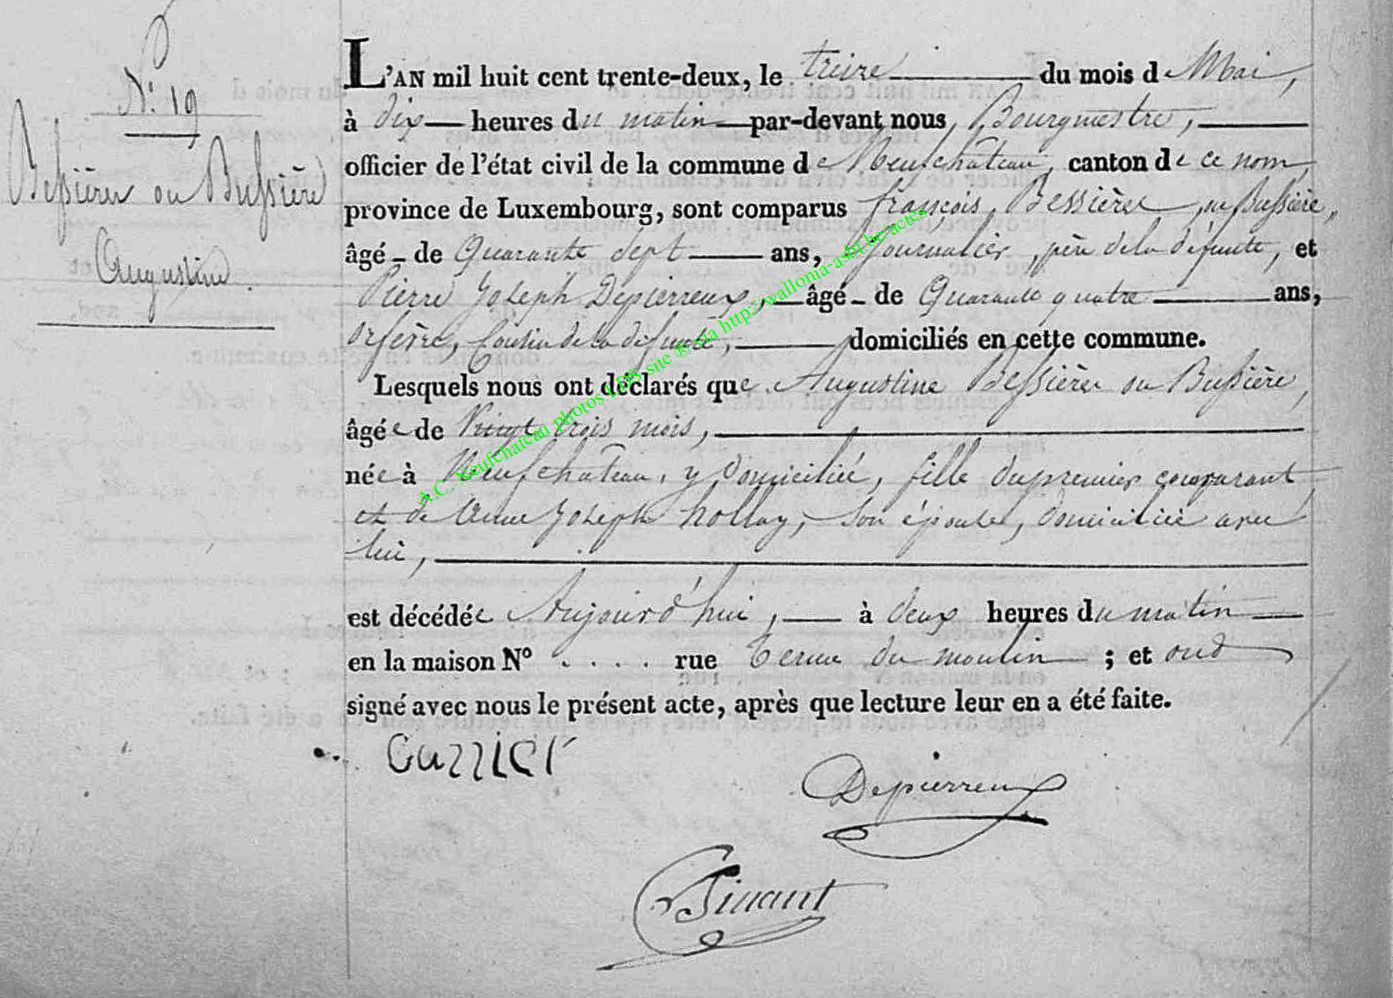 N.° 19
Bessières ou Bussière
Augustine.
L'AN mil huit cent trente-deux, le treize du mois de Mai,
à dix heures du matin par-devant nous, Bourgmestre,
officier de l'état civil de la commune de Neufchâteau, canton de ce nom,
province de Luxembourg, sont comparus françois Bessières, ou Bussière,
âgé de Quarante sept ans, Journalier, père de la défunte, et
Pierre Joseph Depierreux, âgé de Quarante quatre ans,
orfèvre, Cousin de la défunte, domiciliés en cette commune.
Lesquels nous ont déclarés que Augustine Bessières ou Bussière,
âgée de Vingt trois mois,
née à Neufchâteau, y domiciliée, fille du premier comparant
et de Anne Joseph hollay, son épouse, domiciliée avec
lui,
est décédée Aujourd'hui, à deux heures du matin
en la maison N° .... rue terme du moulin ; et ont
signé avec nous le présent acte, après que lecture leur en a été faite.
Depierreux
A.C. Neufchateau photos LDS site ® via http://wallonia-asbl.be/actes